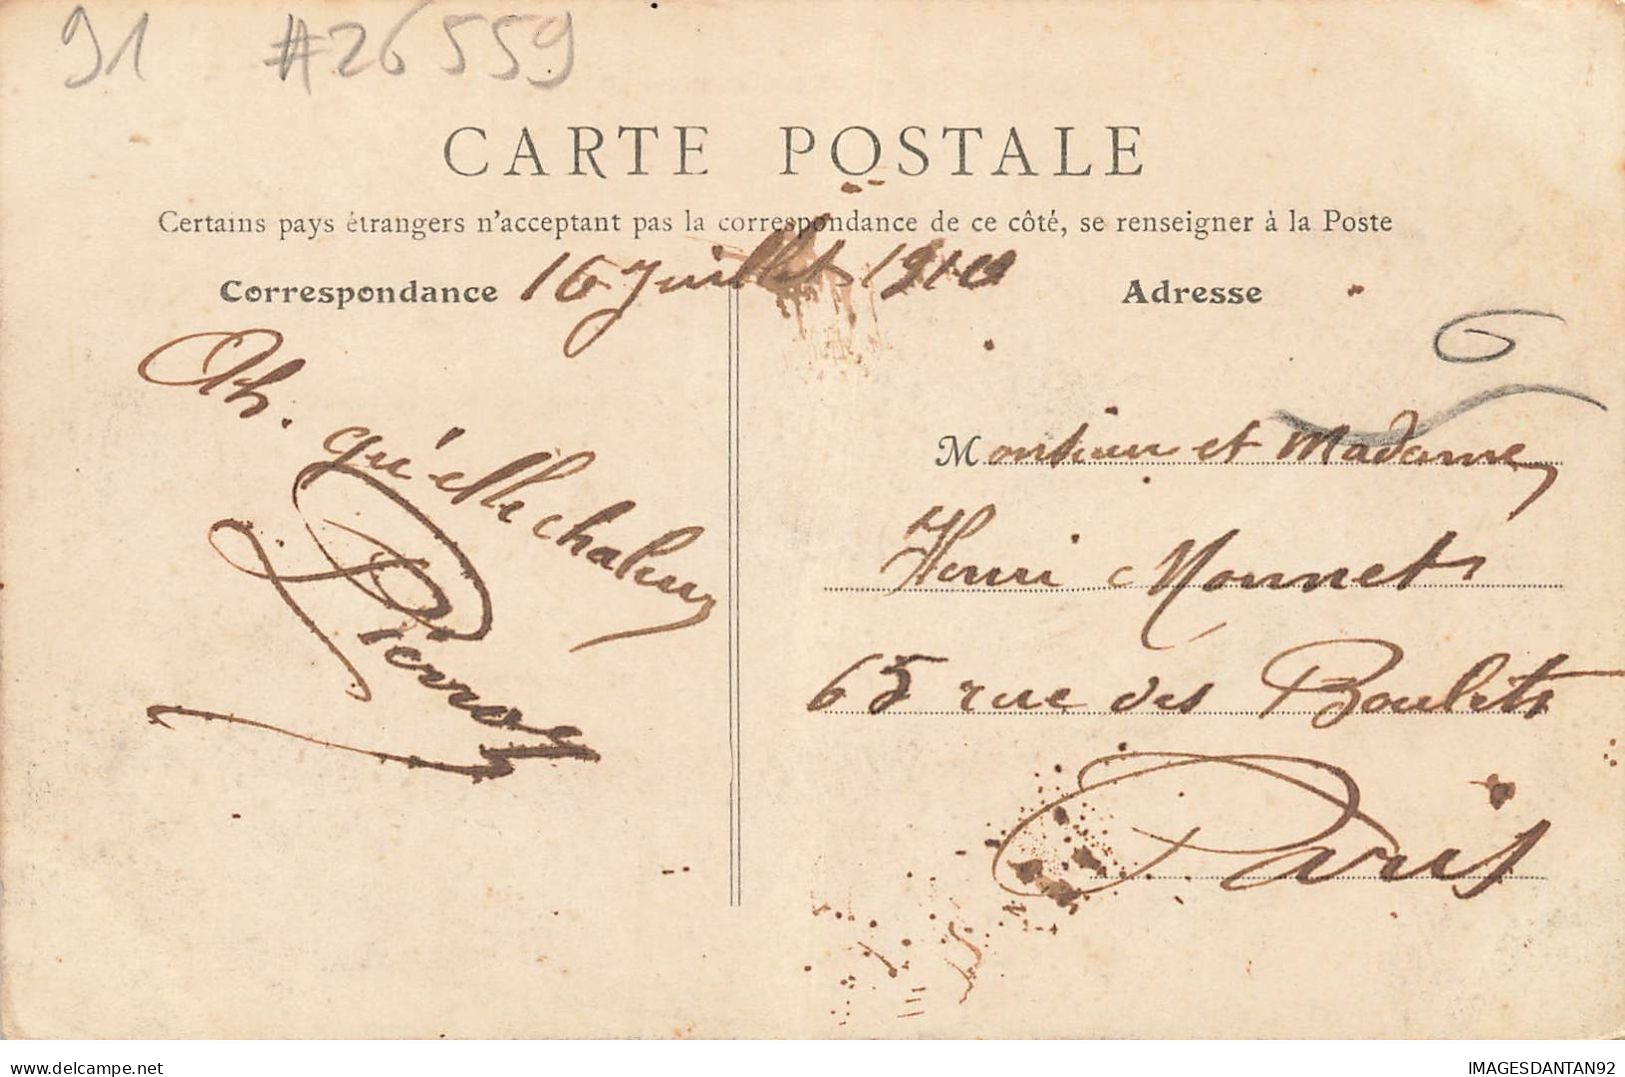 91 #26559
CARTE POSTALE
Certains pays étrangers n'acceptant pas la correspondance de ce côté, se renseigner à la Poste
Correspondance 16 Juillet 1910
Adresse
Oh. qu'elle chaleur
Pierroy
Monsieur et Madame,
Henri Monnet
65 rue des Boulets
Paris
IMAGESDANTAN92